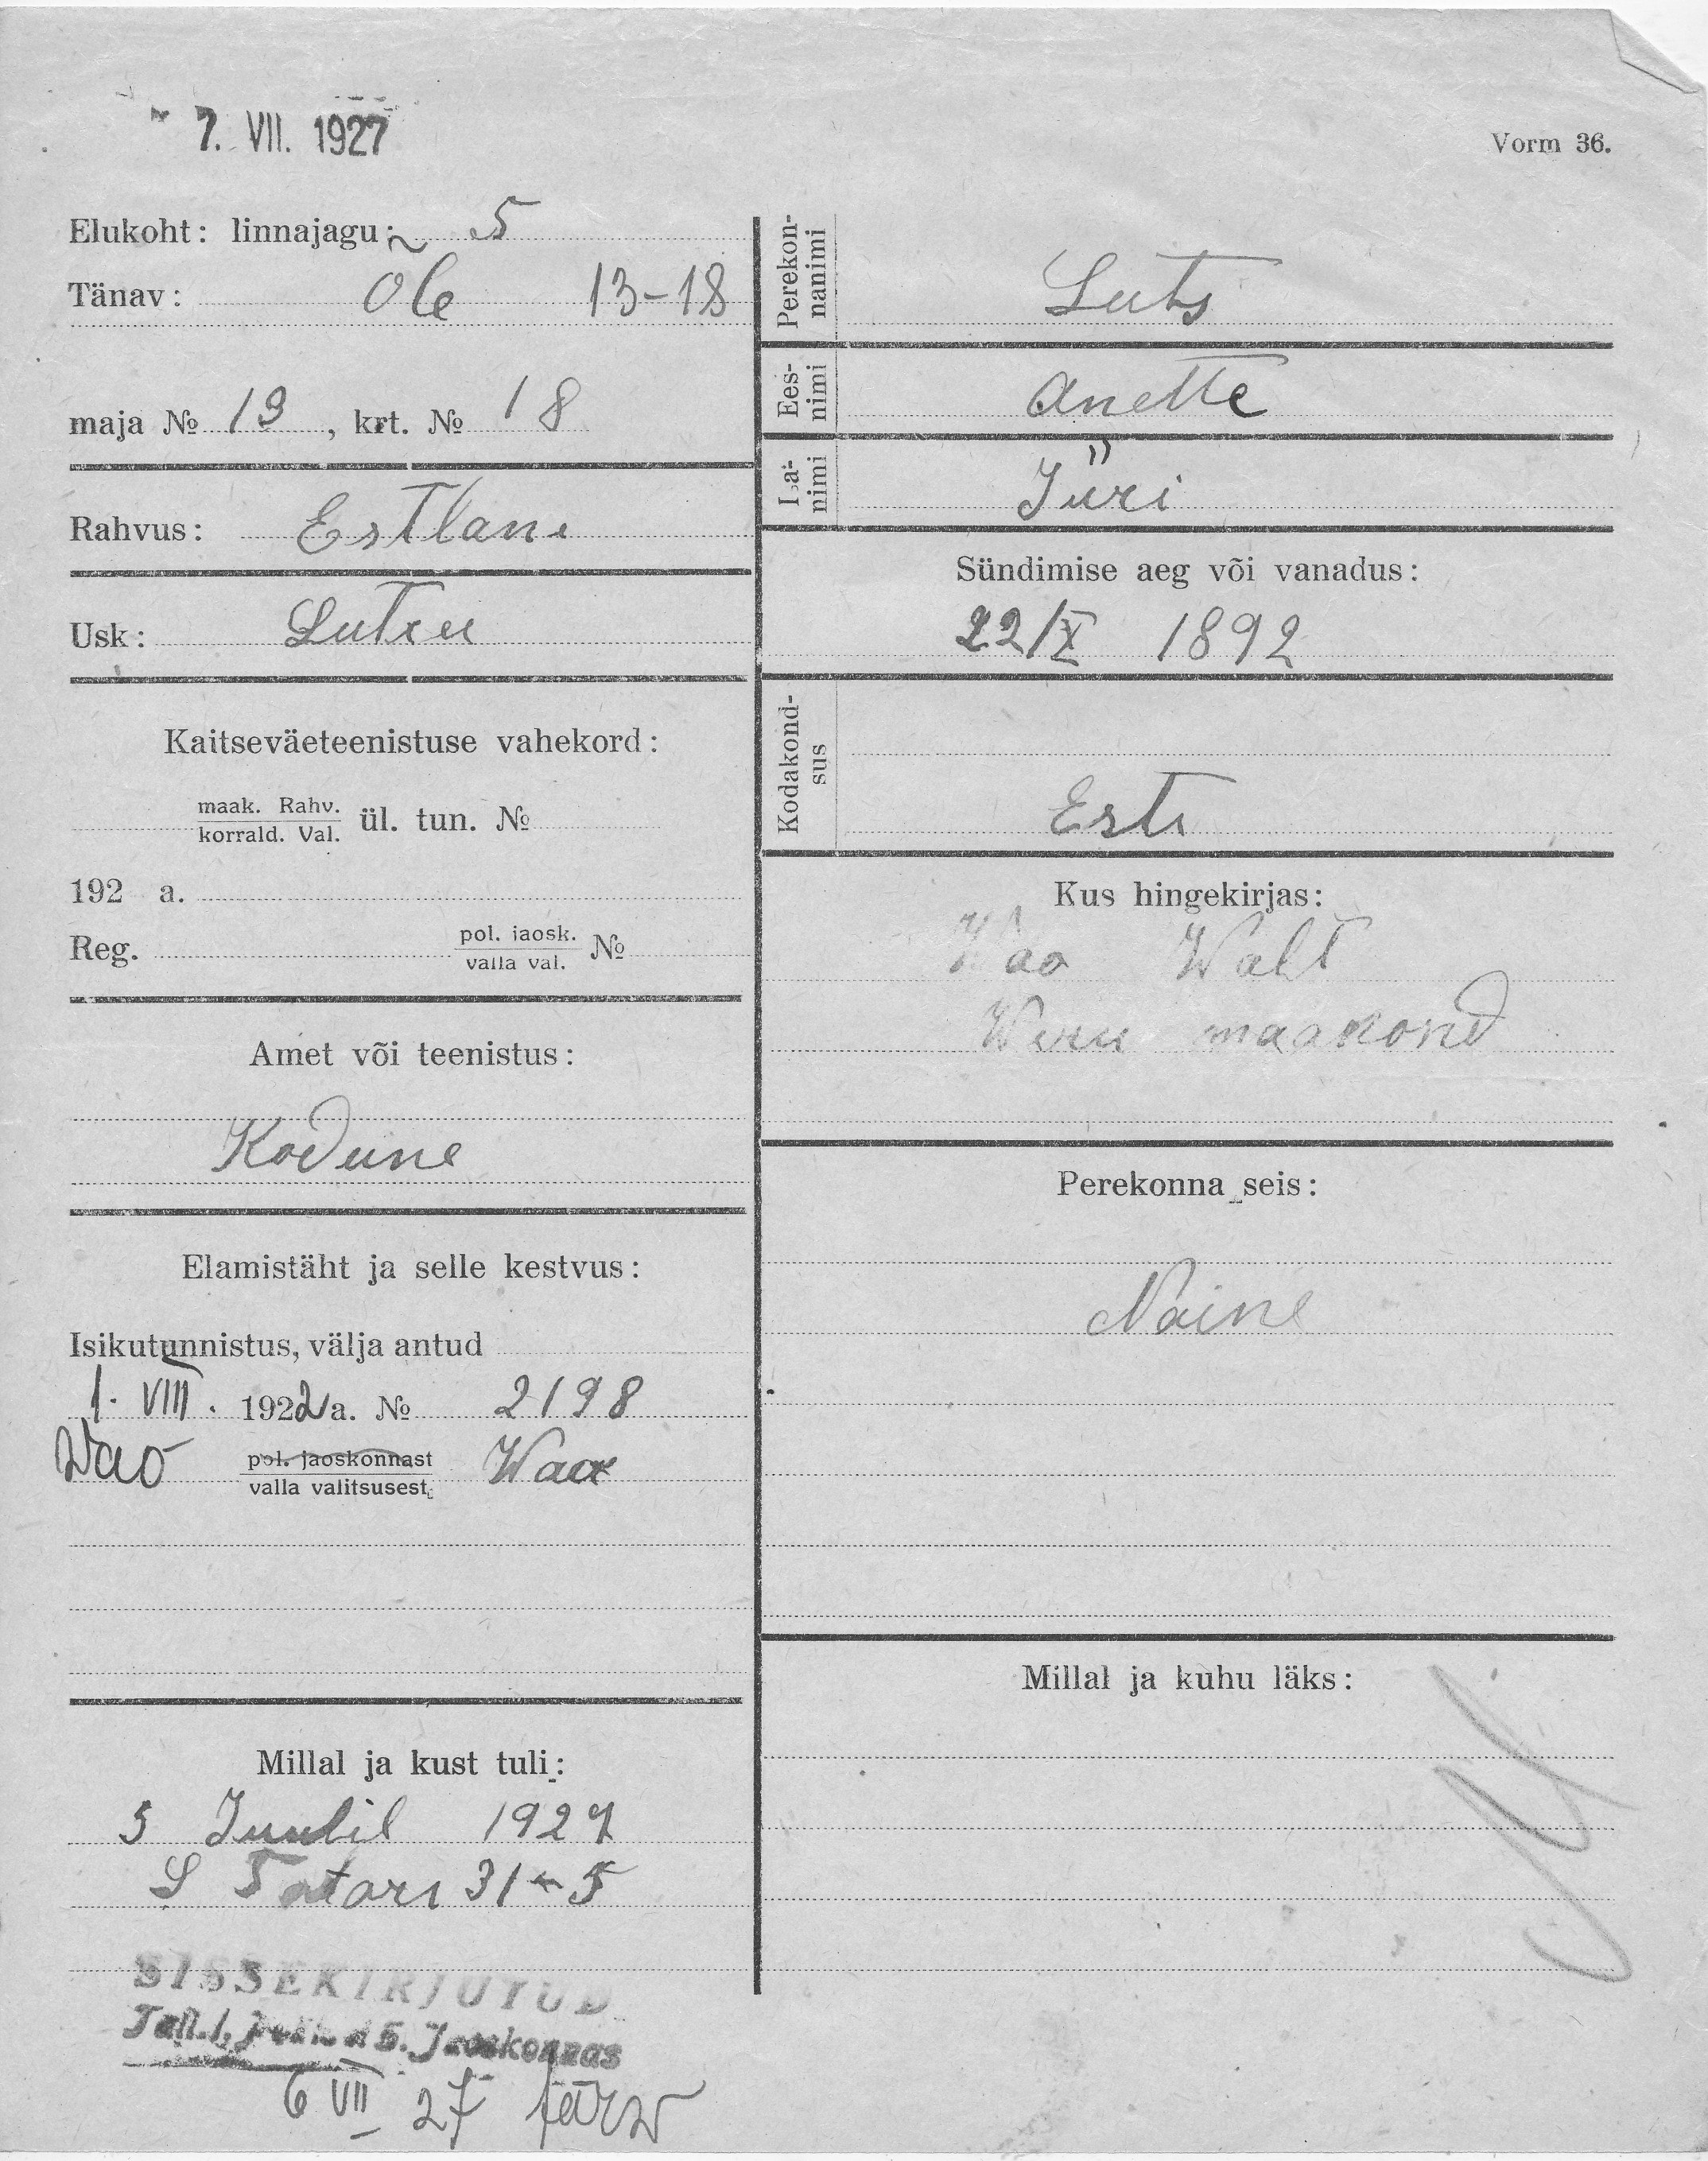 7. VII. 1927
Vorm 36.
Elukoht: linnajagu: 5
Tänav: Ole 13-18
maja № 13, krt. № 18
Rahvus: Estlane
Usk: Lutru
Kaitseväeteenistuse vahekord:
maak. Rahv.
korrald. Val. ül. tun. №
192 a.
Reg. pol. jaosk. №
valla val.
Amet või teenistus:
Kodune
Elamistäht ja selle kestvus:
Isikutunnistus, välja antud
1. VIII. 1922 a. № 2198
Wao pol. jaoskonnast Wao
valla valitsusest
Millal ja kust tuli:
5 Juulil 1927
S Tatari 31-5
SISSEKIRJUTUD
Tall. 5. Jaoskonnas
6 VII 27
Perekonnanimi Luts
Eesnimi Anette
Isanimi Jüri
Sündimise aeg või vanadus:
22/X 1892
Kodakondsus
Esti
Kus hingekirjas:
Wao Walt
Wiru maakond
Perekonna seis:
Naine
Millal ja kuhu läks: